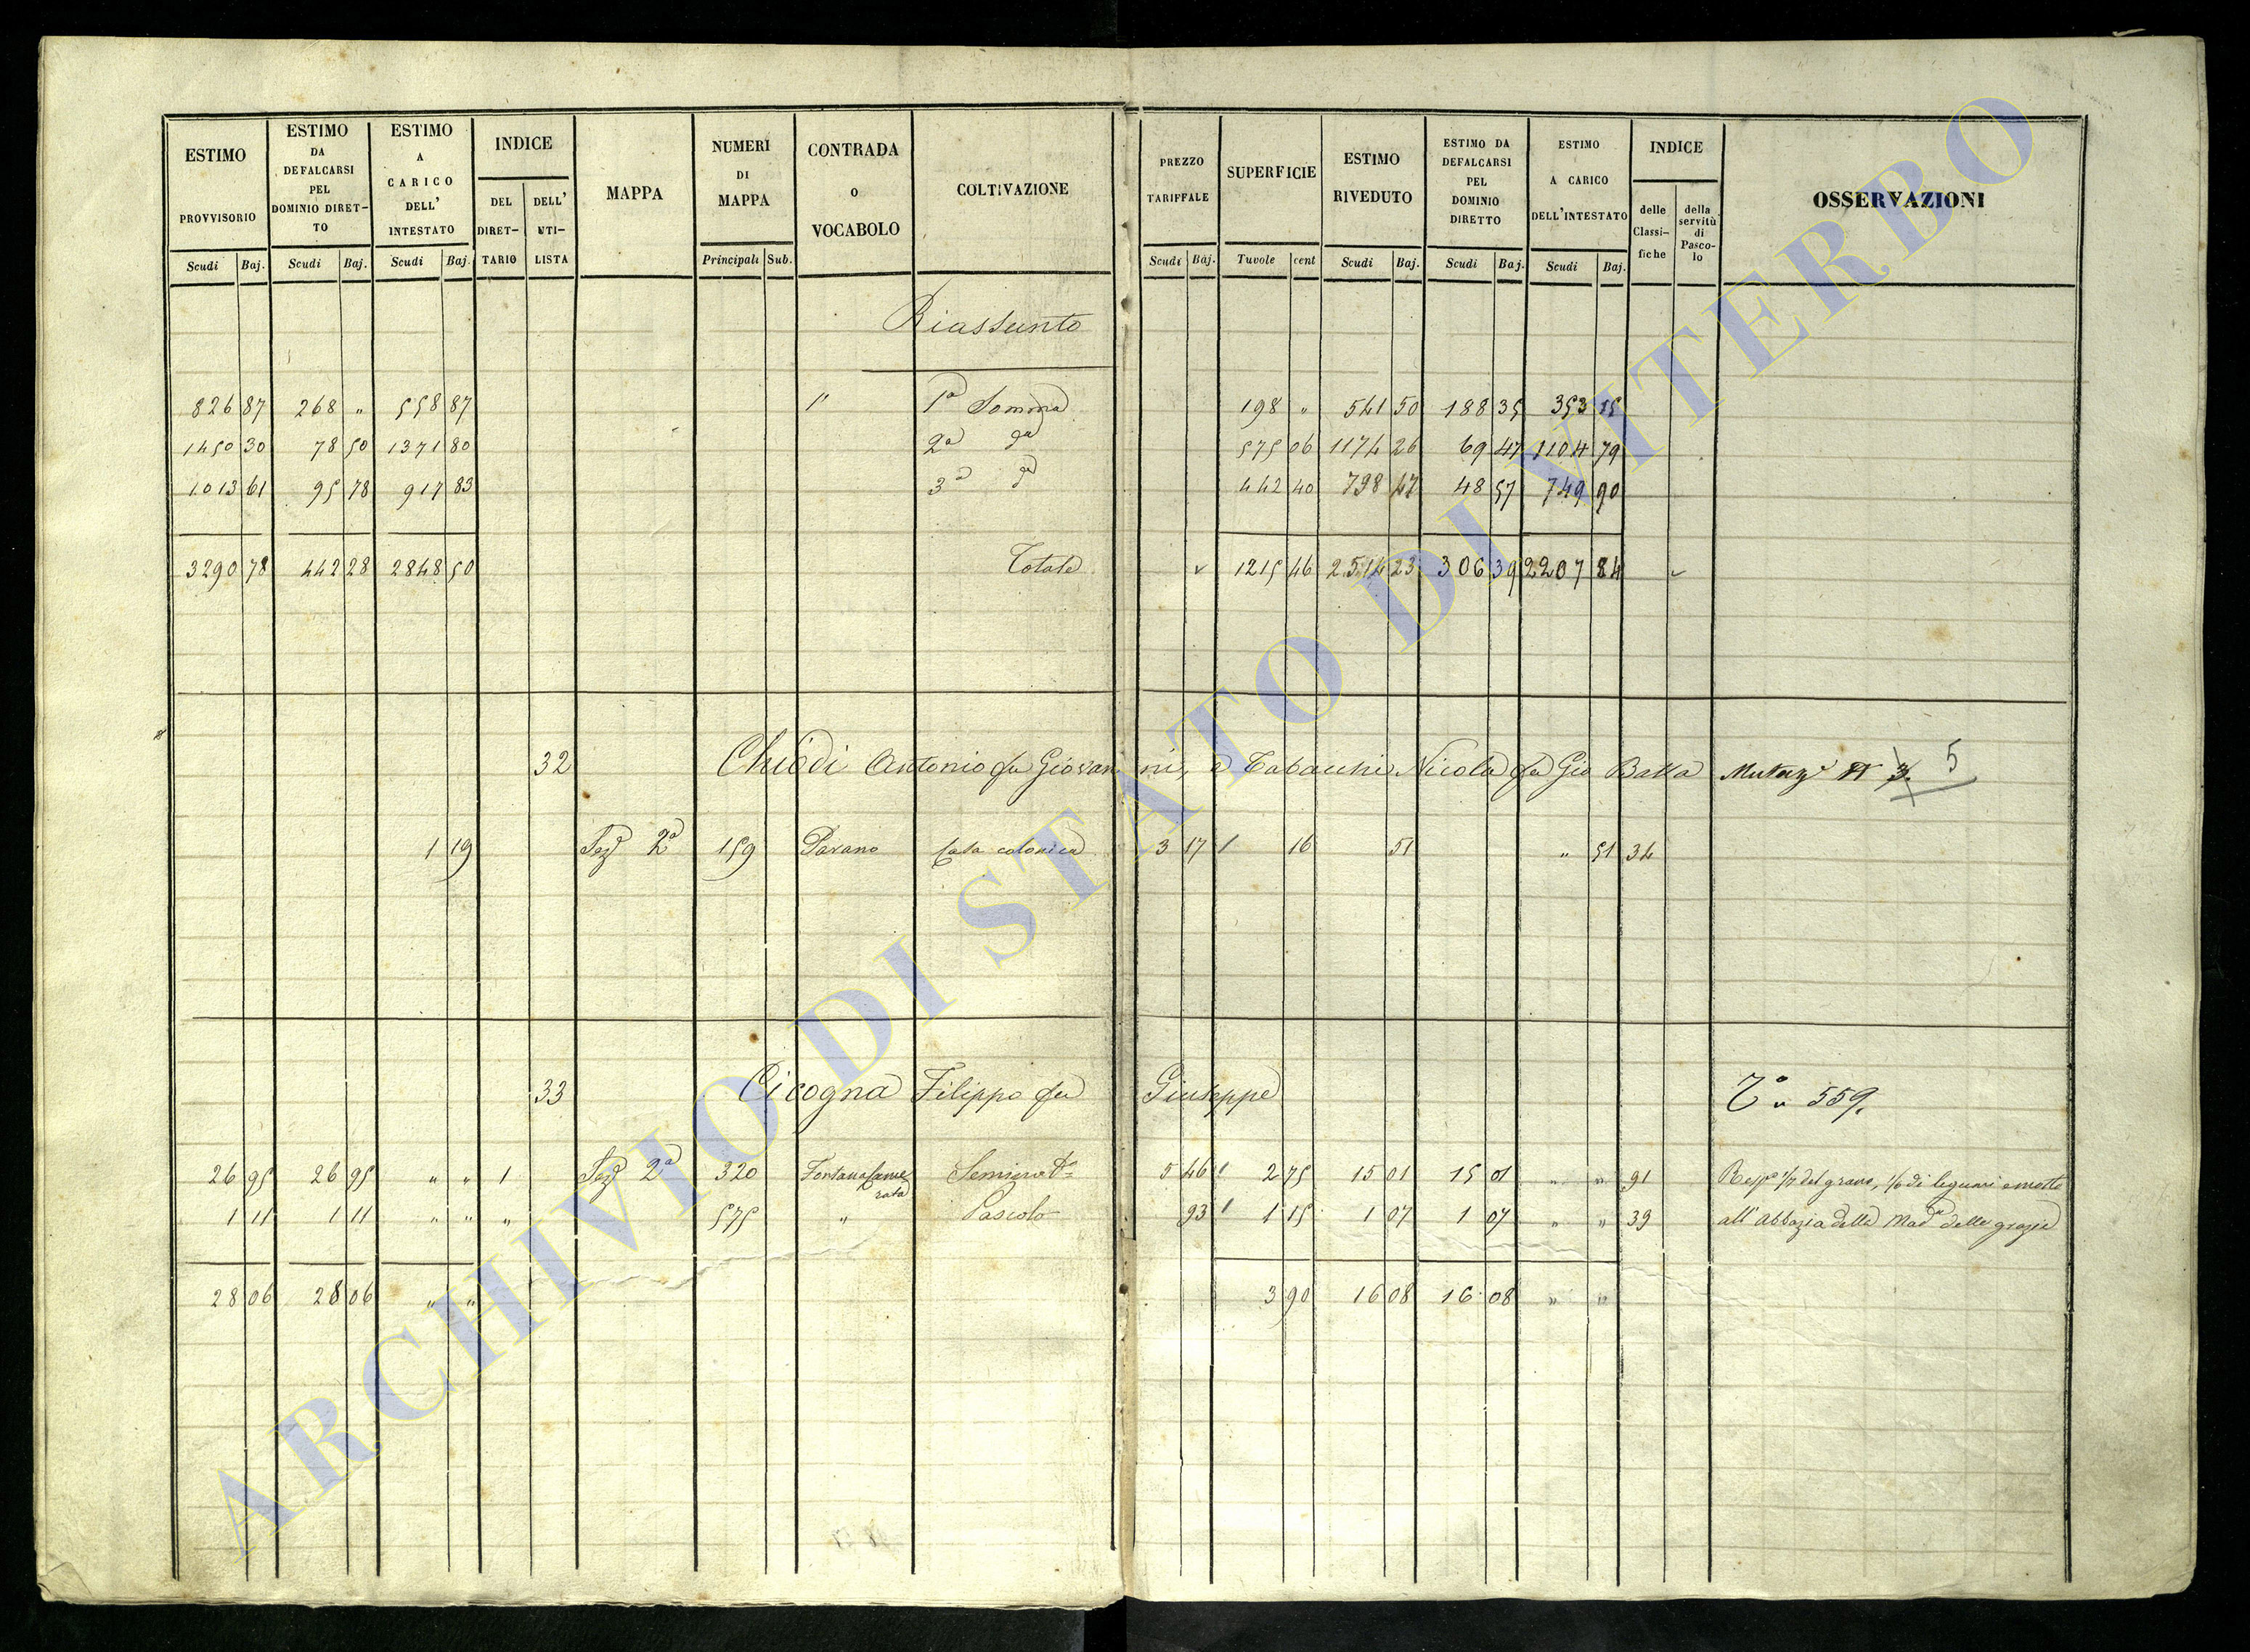 ESTIMO PROVVISORIO
ESTIMO DA DEFALCARSI PEL DOMINIO DIRET-TO
ESTIMO A CARICO DELL' INTESTATO
INDICE
DEL DIRET-TARIO
DELL' UTI-LISTA
MAPPA
NUMERI DI MAPPA
CONTRADA O VOCABOLO
COLTIVAZIONE
PREZZO TARIFFALE
SUPERFICIE
ESTIMO RIVEDUTO
ESTIMO DA DEFALCARSI PEL DOMINIO DIRETTO
ESTIMO A CARICO DELL'INTESTATO
INDICE
delle Classi-fiche
della servitù di Pasco-lo
OSSERVAZIONI
Scudi Baj. Scudi Baj. Scudi Baj. Principali Sub. Scudi Baj. Tavole cent Scudi Baj. Scudi Baj. Scudi Baj.
Riassunto
826 87 268 " 558 87 1" 1a Somma 198 " 541 50 188 35 353 15
1450 30 78 50 1371 80 2a da 575 06 1174 26 69 47 1104 79
1013 61 95 78 917 83 3a da 442 40 798 47 48 57 749 90
3290 78 442 28 2848 50 Totale 1215 46 2514 23 306 39 2207 84
32 Chiodi Antonio fu Giovanni, e Tabacchi Nicola fu Gio Batta Mutaz 5
1 19 Sez 2a 159 Pavano Casa colonica 3 17 16 51 " 51 34
33 Cicogna Filippo fu Giuseppe 559.
26 95 26 95 " " 1 Sez 2a 320 Fontana Camerata Seminvo 5 46 2 75 15 01 15 01 " " 91 Respe 1/7 del grano, 1/0 di legumi e mosto
1 11 1 11 " " " 575 " Pascolo 93 1 15 1 07 1 07 " " 39 all' Abbazia della Mada delle grazie
28 06 28 06 " " 3 90 16 08 16 08 " "
ARCHIVIO DI STATO DI VITERBO